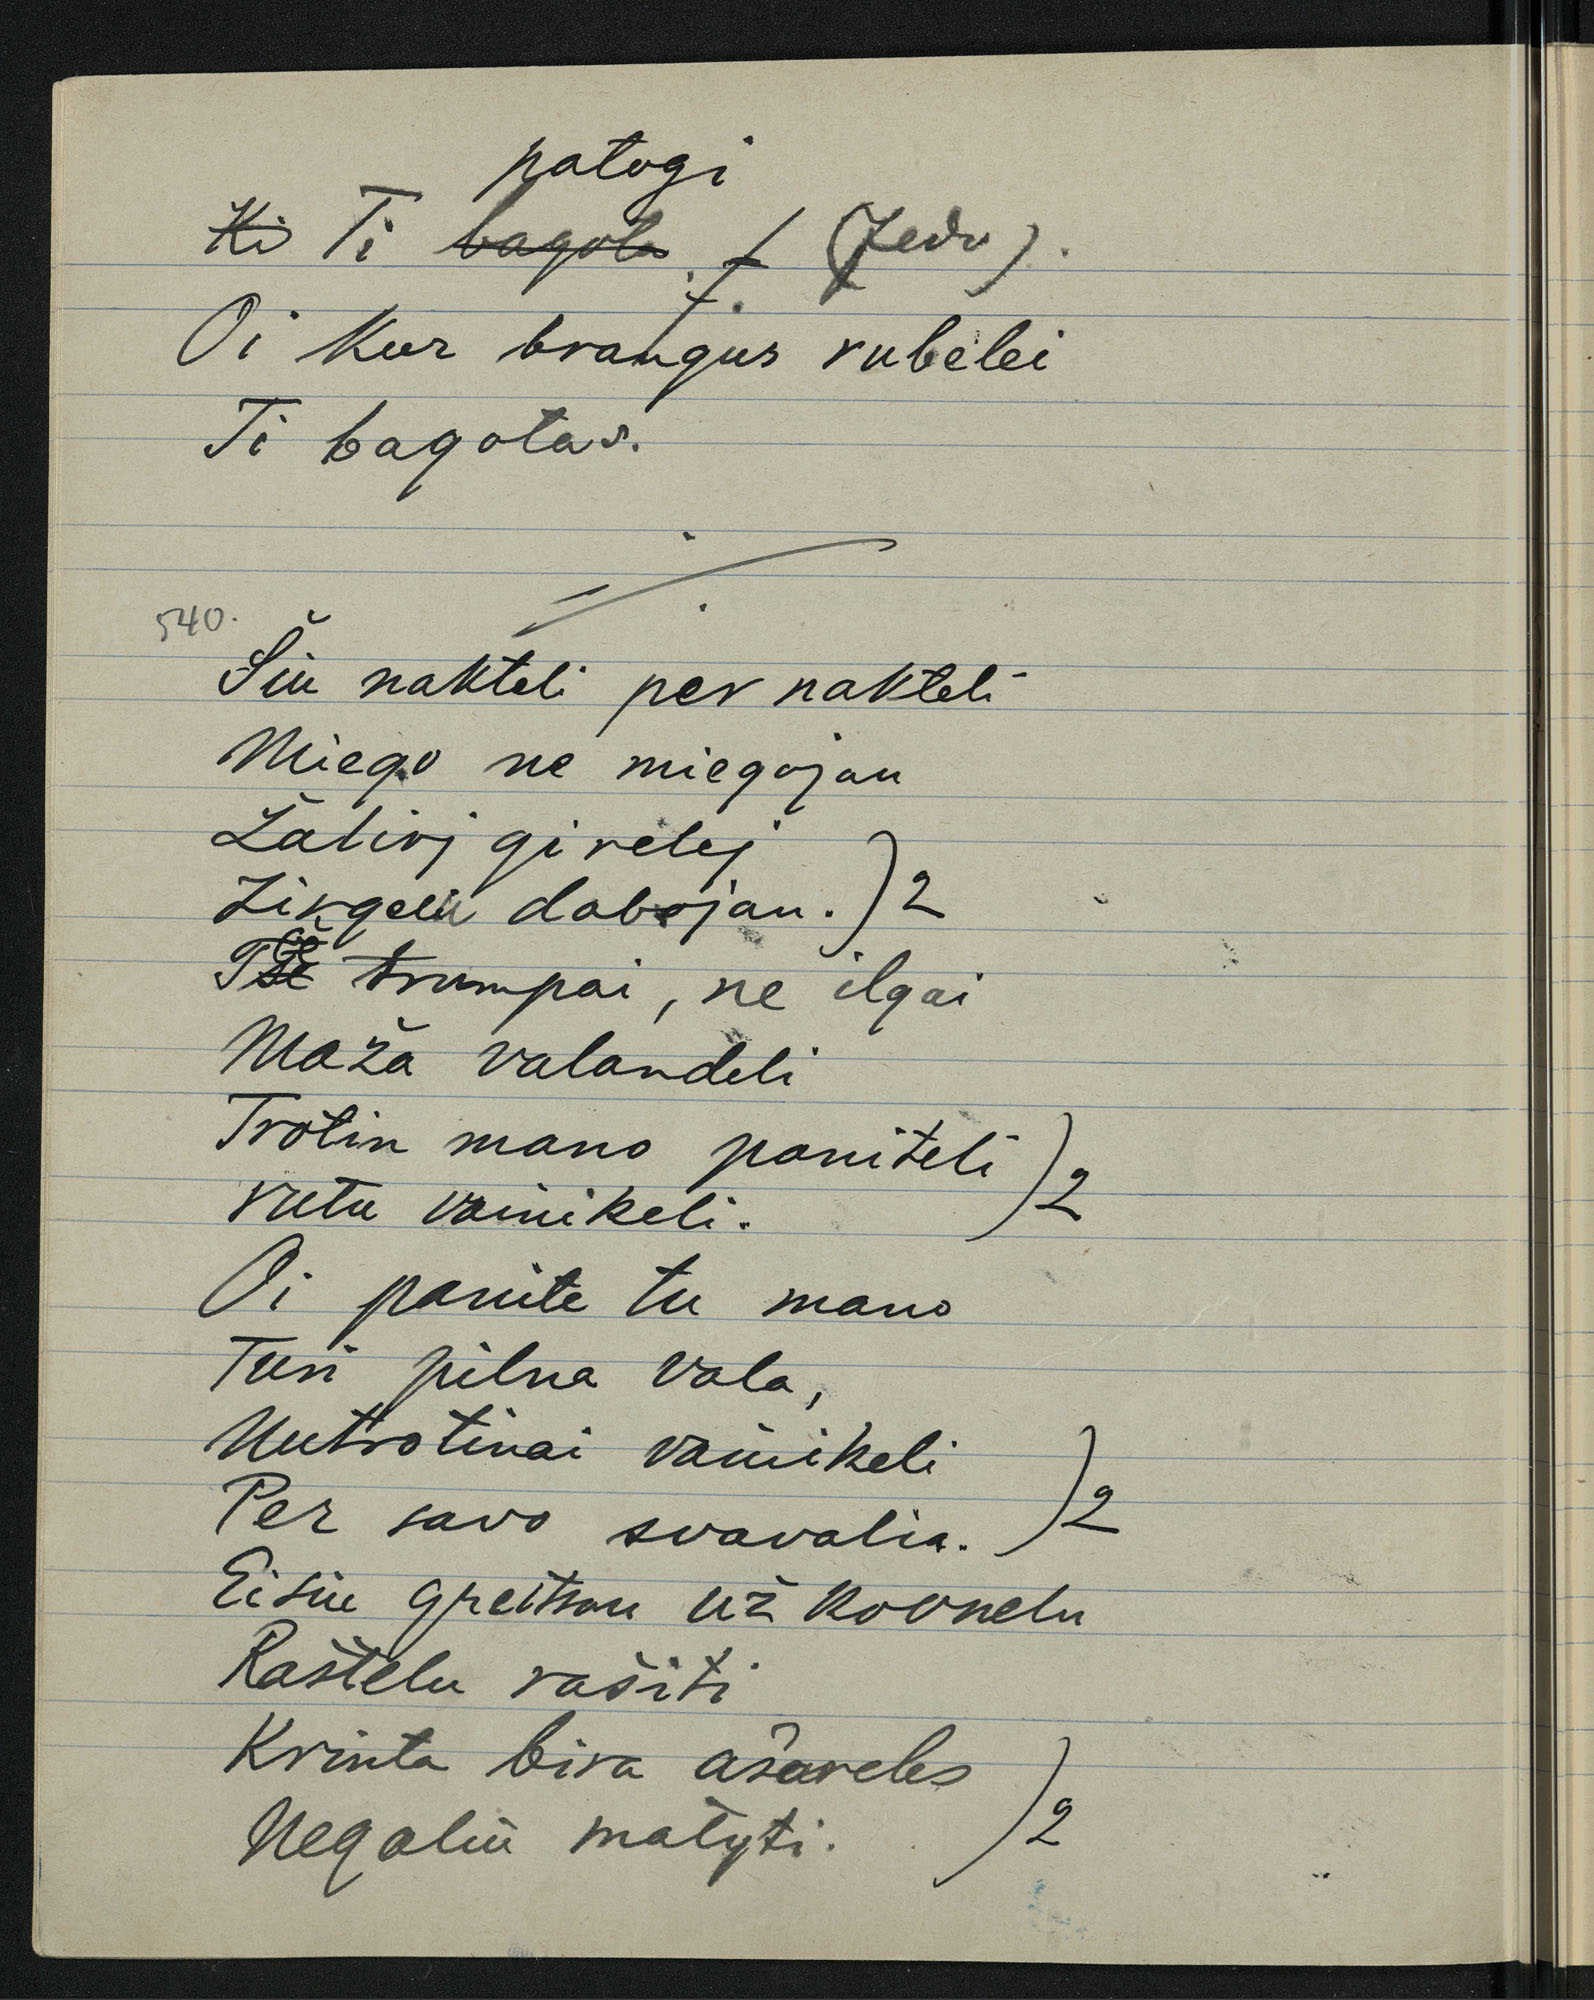 patogi
Ki Ti bagota (Zedu).
Oi Kur brangus rubelei
Ti bagotas.
540.
Šiu nakteli per nakteli
Miego ne miegojau
Žalioj girelej
Žirgeli dabojau. )2
trumpai, ne ilgai
Maža valandeli
Trotin mano paniteli )2
rutu vainikeli.
Oi panite tu mano
Turi pilna vala,
Nutrotinai vainikeli )2
Per savo svavalia.
Eisiu greitsau už koonelu
Raštelu rašiti
Krinta bira ašareles )2
Negaliu matyti.